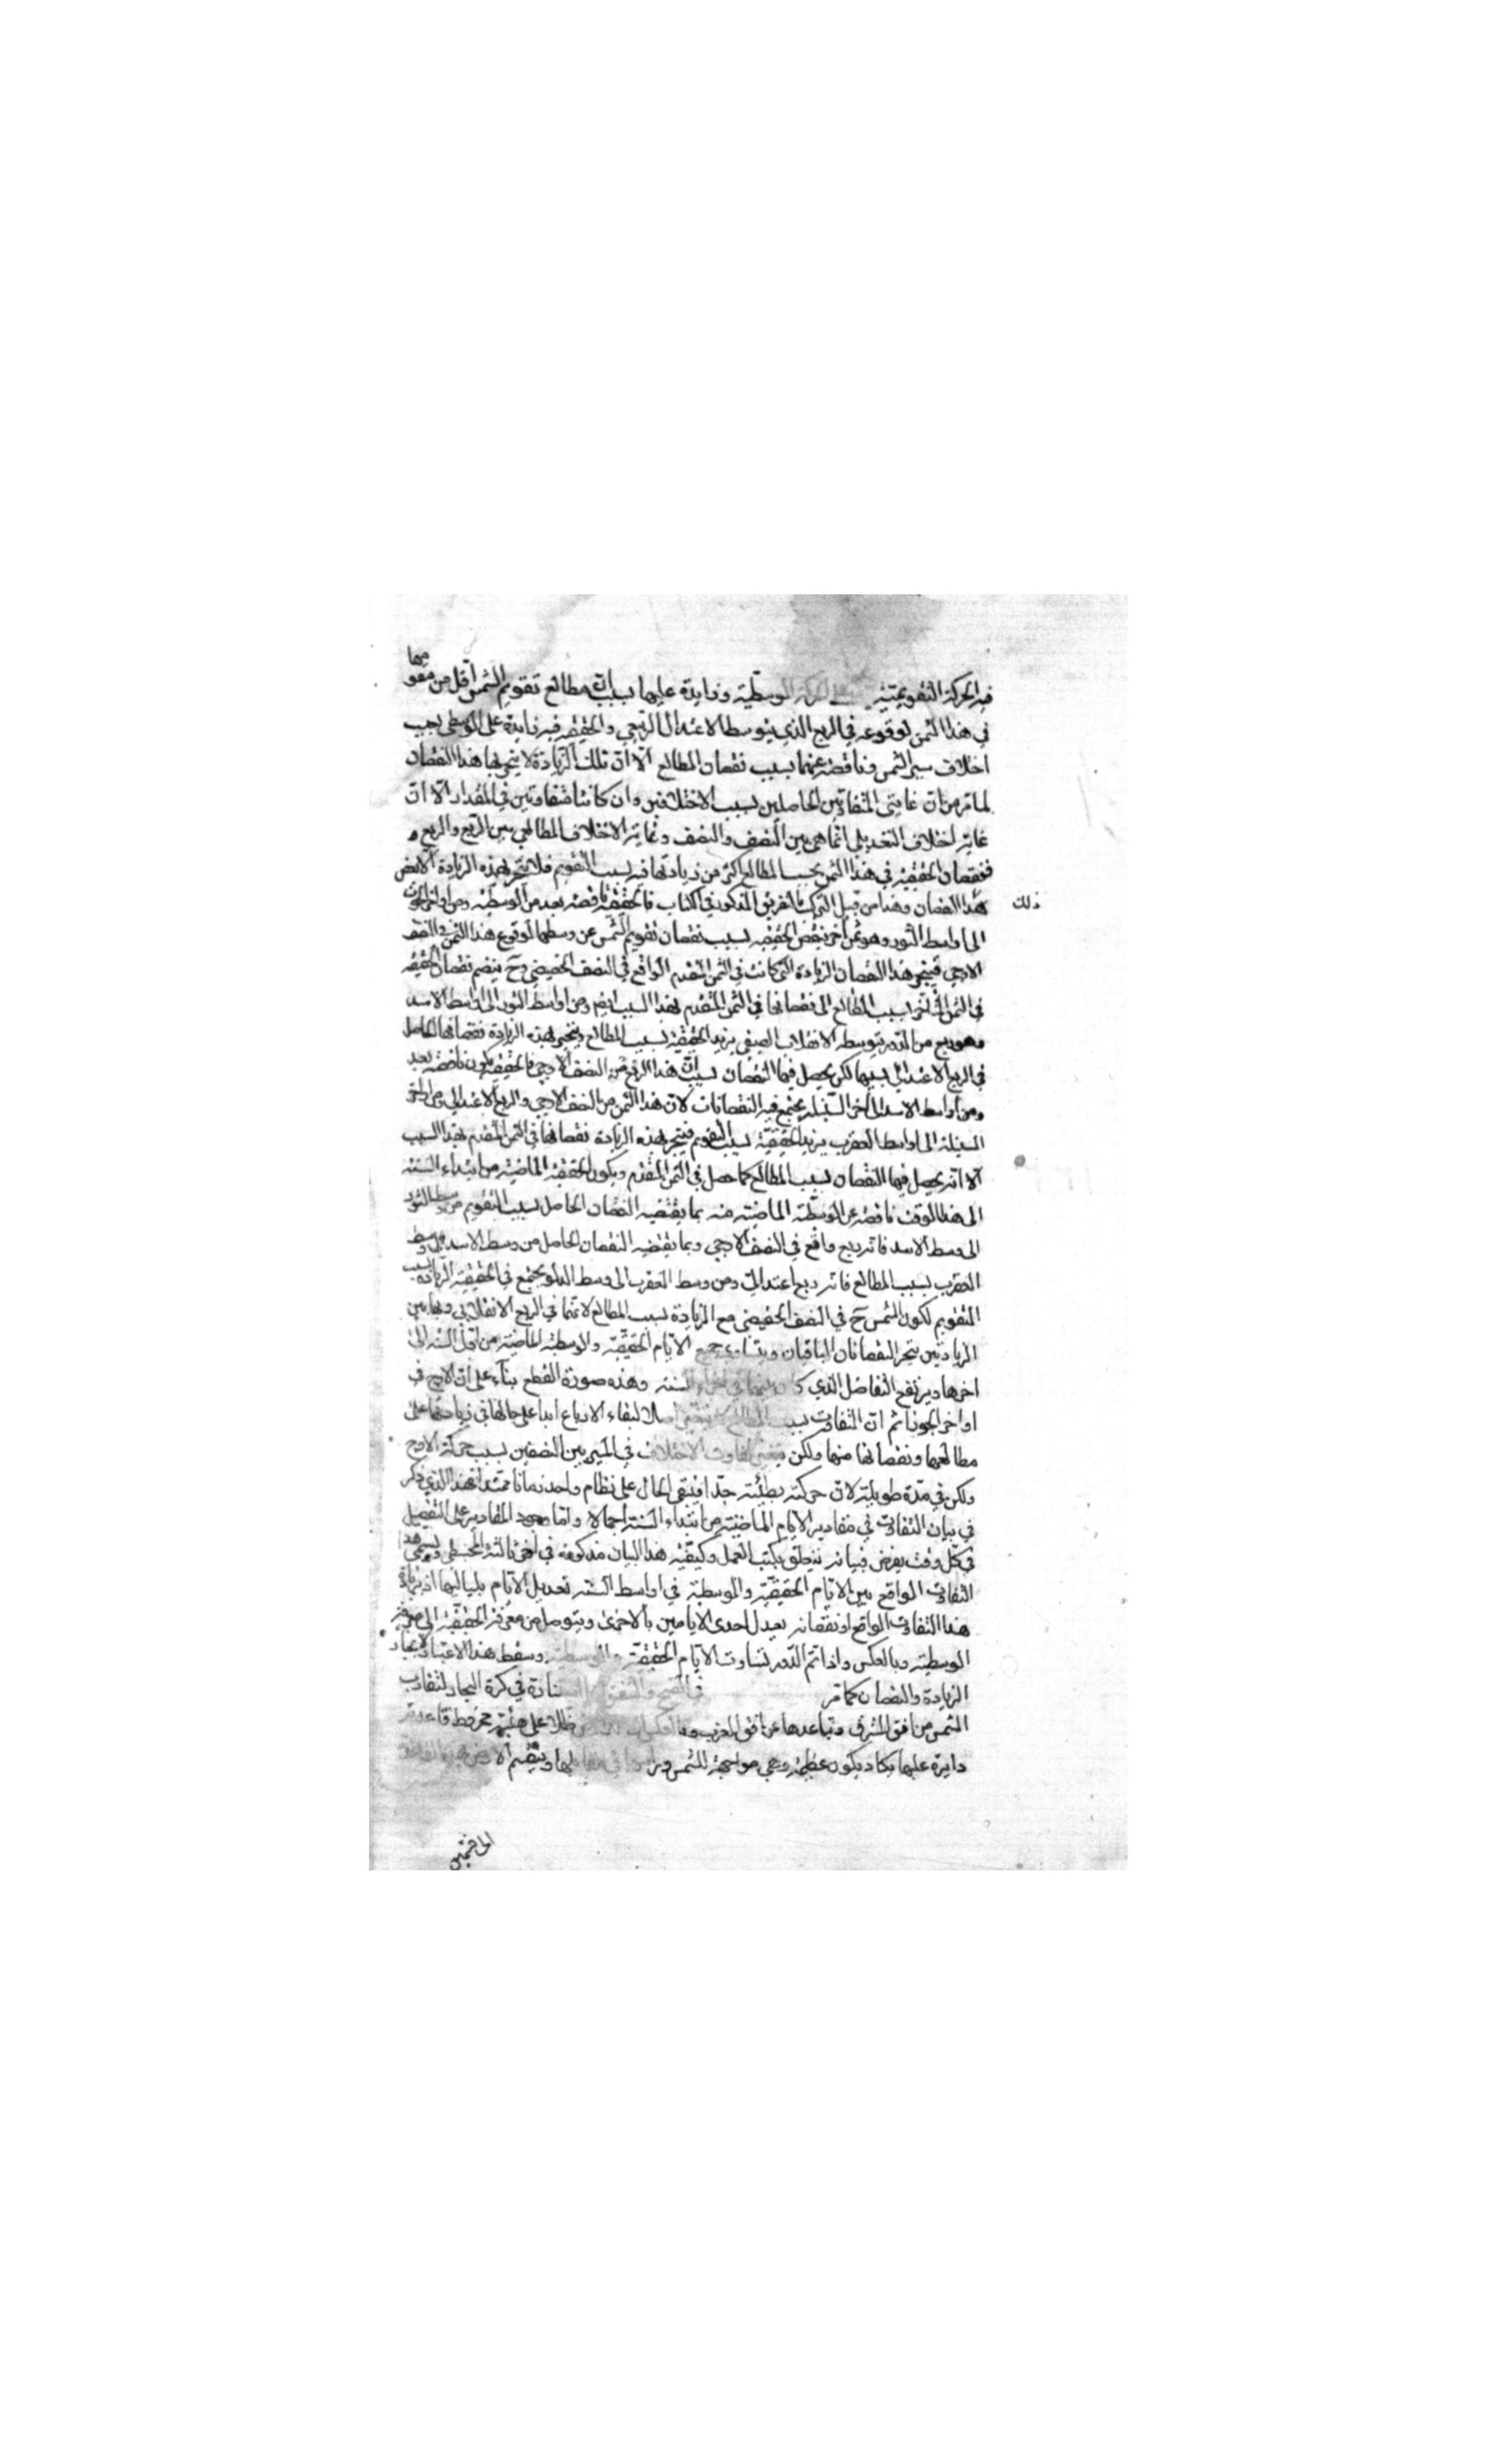 فيه الحركة التقويمية على الحركة الوسطية وزايدة عليها بسبب ان مطالع تقويم الشمس اقل من مقومها
في هذا الثمن لوقوعه في الربع الذي يتوسطه الاعتدال الربيعي والحقيقية فيه زايدة على الوسطى بحسب
اختلاف سير الشمس وناقصة عنها بسبب نقصان المطالع الا ان تلك الزيادة لا ينجبر بها هذا النقصان
لما مر من ان غايتي التفاوتين الحاصلين بسبب الاختلافين وان كانتا متفاوتتين في المقدار الا ان
غاية اختلاف التعديل انما هي بين النصف والنصف وغاية الاختلاف المطالعي بين الربع والربع و
فنقصان الحقيقية في هذا الثمن بحسب المطالع اكثر من زيادتها فيه بسبب التقويم فلا ينجبر بهذه الزيادة الا بعض
ذلك
هذا النقصان وهذا من قبيل التركب بالتفريق المذكور في الكتاب فالحقيقية ناقصة بعد من الوسطية ومن اواخر الحوت
الى اواسط الثور وهو ثمن آخر تنقص الحقيقية بسبب نقصان تقويم الشمس عن وسطها لوقوع هذا الثمن في النصف
الاوجي فينجبر هذا النقصان الزيادة التي كانت في الثمن المتقدم الواقع في النصف الحضيضي وح ينضم نقصان الحقيقية
في الثمن المتاخر بسبب المطالع الى نقصانها في الثمن المتقدم بهذا السبب ايضا ومن اواسط الثور الى اواسط الاسد
وهو ربع من الدور يتوسطه الانقلاب الصيفي يزيد الحقيقية بسبب المطالع وينجبر بهذه الزيادة نقصانها الحاصل
في الربع الاعتدالي بسببها لكن يحصل فيها النقصان بسبب ان هذا الربع من النصف الاوجي فالحقيقية يكون ناقصة بعد
ومن اواسط الاسد الى آخر السنبلة يجتمع فيه النقصانات لان هذا الثمن من النصف الاوجي والربع الاعتدالي ومن اواخر
السنبلة الى اواسط العقرب يزيد الحقيقية بسبب التقويم فينجبر بهذه الزيادة نقصانها في الثمن المتقدم بهذا السبب
الا انه يحصل فيها النقصان بسبب المطالع كما حصل في الثمن المتقدم ويكون الحقيقية الماضية من ابتداء السنة
الى هذا الوقت ناقصة عن الوسطية الماضية منه بما يقتضيه النقصان الحاصل بسبب التقويم من وسط الثور
الى وسط الاسد فانه ربع واقع في النصف الاوجي وبما يقتضيه النقصان الحاصل من وسط الاسد الى وسط
العقرب بسبب المطالع فانه ربع اعتدالي ومن وسط العقرب الى وسط الدلو يجتمع في الحقيقية الزيادة بسبب
التقويم لكون الشمس ح في النصف الحضيضي مع الزيادة بسبب المطالع لانها في الربع الانقلابي وبهاتين
الزيادتين ينجبر النقصانان الباقيان ويتساوى جميع الايام الحقيقية والوسطية الماضية من اول السنة الى
اخرها ويرتفع التفاضل الذي كان بينهما في اجزاء السنة وهذه صورة القطع بناء على ان الاوج في
اواخر الجوزا ثم ان التفاوت بسبب المطالع لا يتغير اصلا لبقاء الارباع ابدا على حالها في زيادتها على
مطالعها ونقصانها منها ولكن يتغير تفاوت الاختلاف في المسير بين النصفين بسبب حركة الاوج
ولكن في مدة طويلة لان حركته بطيئة جدا فيبقى الحال على نظام واحد زمانا ممتدا فهذا الذي ذكر
في بيان التفاوت في مقادير الايام الماضية من ابتداء السنة اجمالا واما المقادير على التفصيل
في كل وقت يفرض فبيانه يتعلق بكتب العمل وكيفية هذا البيان مذكورة في آخر ثالثة المجسطي ويسمى هذا
التفاوت الواقع بين الايام الحقيقية والوسطية في اواسط السنة تعديل الايام بلياليها اذ بزيادة
هذا التفاوت الواقع او نقصانه يعدل احدى الايامين بالاخرى ويتوصل من معرفة الحقيقية الى معرفة
الوسطية وبالعكس واذا تم الدور تساوت الايام الحقيقية والوسطية وسقط هذا الاعتبار لانجبار
الزيادة والنقصان كما مر في الصبح والشفق استنارة في كرة البخار لتقارب
الشمس من افق المشرق وتباعدها عن افق المغرب ظلا على هيئة مخروط قاعدته
دايرة عليها يكاد يكون عظيمة وهي مواجهة للشمس وراسه في مقابلها وينقسم الارض بهذه القاعدة
الى قسمين